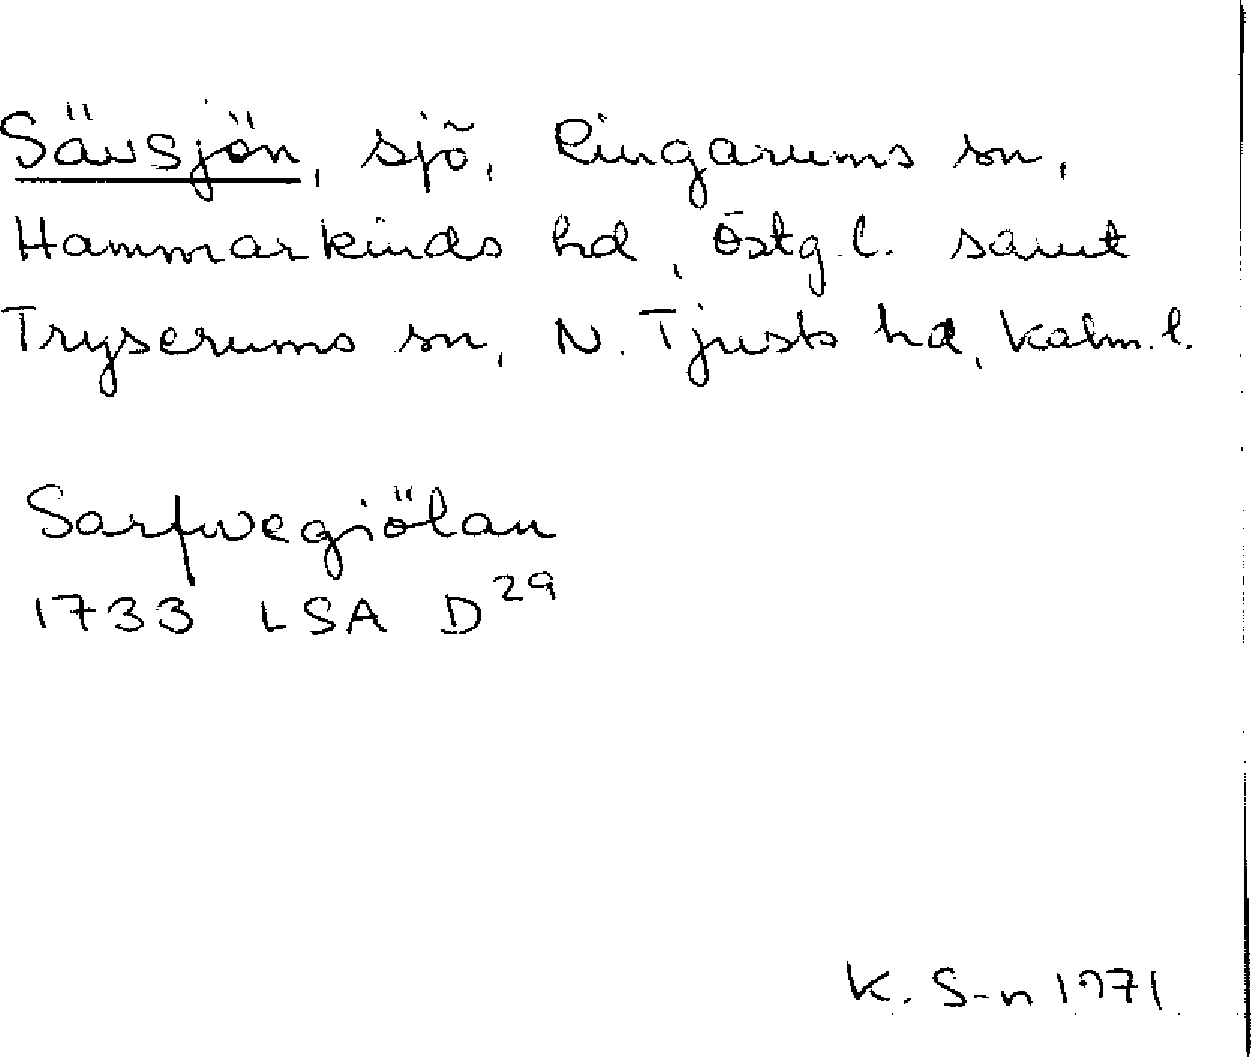 Sävsjön, sjö, Ringarums sn,
Hammarkinds hd, Östg.l. samt
Tryserums sn, N. Tjusts hd, Kalm.l.
Sarfwegiölan
1733 LSA D29
K. S-n 1971